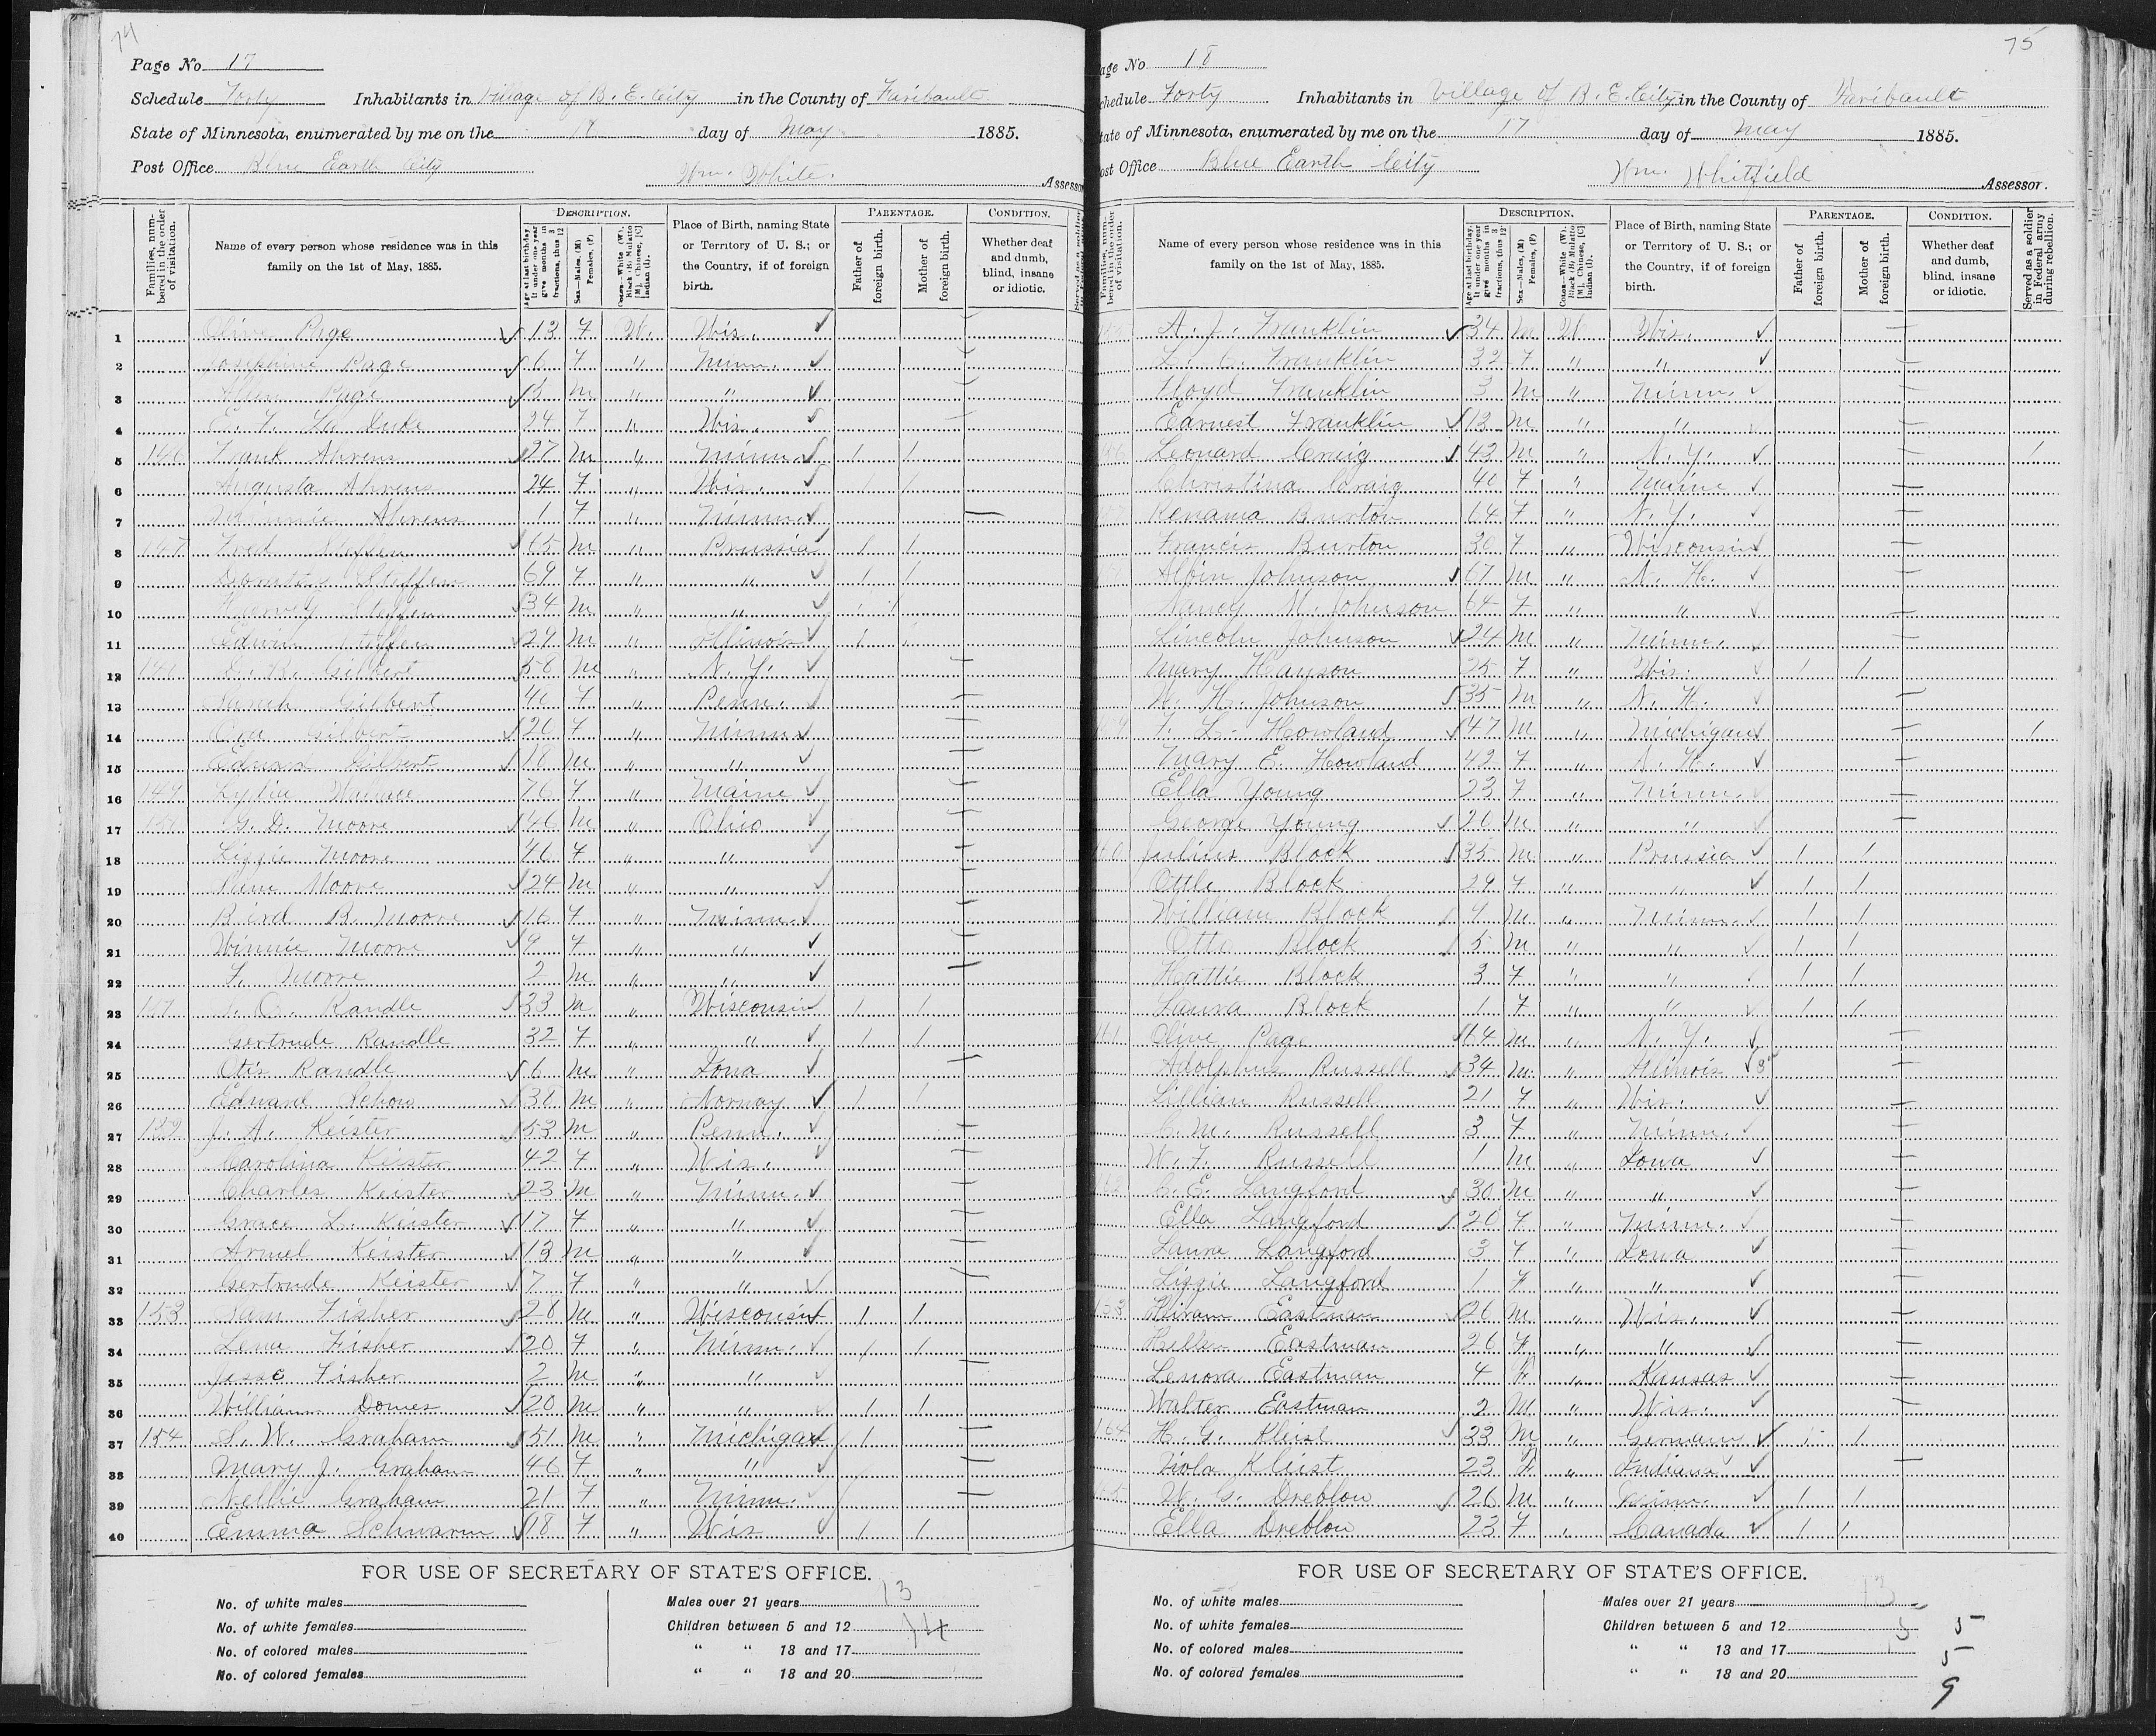 74
Page No 17
Schedule Forty Inhabitants in Village of B. E. City in the County of Faribault
State of Minnesota, enumerated by me on the day of May 1885.
Post Office Blue Earth City
Wm. White. Assessor
Families, numbered in the order of visitation.
Name of every person whose residence was in this family on the 1st of May, 1885.
DESCRIPTION.
Place of Birth, naming State or Territory of U. S.; or the Country, if of foreign birth.
PARENTAGE.
Father of foreign birth.
Mother of foreign birth.
CONDITION.
Whether deaf and dumb, blind, insane or idiotic.
1 Olive Page 13 F W. Wis.
2 Josephine Page 6 F " Minn.
3 Page M " "
4 E. F. La Duke 24 F " Wis.
5 146 Frank Ahrens 27 M " Minn. 1 1
6 Augusta Ahrens 24 F " Wis. 1 1
7 Minnie Ahrens 1 F " Minn.
8 147 Fred Steffen 65 M " Prussia 1 1
9 Steffen 69 F " " 1 1
10 Steffen 34 M " " 1 1
11 Edwin Steffen 29 M " Illinois 1 1
12 Gilbert M " N. Y.
13 Sarah Gilbert F " Penn.
14 Gilbert F " Minn
15 Gilbert 18 M " "
16 149 Lydia Wallace 76 F " Maine
17 G. D. Moore 46 M " Ohio
18 Lizzie Moore 46 F " "
19 Sam Moore 24 M " "
20 Bird B. Moore 16 F " Minn.
21 Winnie Moore 9 F " "
22 F. Moore 2 M " "
23 Randle 33 M " Wisconsin 1 1
24 Gertrude Randle 32 F " " 1 1
25 Otis Randle 6 M " Iowa
26 Edward M " Norway 1 1
27 152 J. A. Keister 53 M " Penn.
28 Carolina Keister 42 F " Wis.
29 Charles Keister 23 M " Minn.
30 Grace L. Keister 17 F " "
31 Armel Keister 13 M " "
32 Gertrude Keister 7 F " "
33 153 Sam Fisher 28 M " Wisconsin 1 1
34 Lena Fisher 20 F " Minn. 1 1
35 Jesse Fisher 2 M " "
36 William Domes 20 M " " 1 1
37 154 S. W. Graham 51 M " Michigan 1
38 Mary J. Graham 46 F " "
39 Nellie Graham 21 F " Minn.
40 Emma Schwarm 18 F " Wis 1 1
FOR USE OF SECRETARY OF STATE'S OFFICE.
No. of white males
No. of white females
No. of colored males
No. of colored females
Males over 21 years 13
Children between 5 and 12 14
" " 13 and 17
" " 18 and 20
75
age No 18
chedule Forty Inhabitants in Village of B. E. City in the County of Faribault
tate of Minnesota, enumerated by me on the 17 day of May 1885.
ost Office Blue Earth City
Wm. Whitfield Assessor.
Name of every person whose residence was in this family on the 1st of May, 1885.
DESCRIPTION.
Place of Birth, naming State or Territory of U. S.; or the Country, if of foreign birth.
PARENTAGE.
Father of foreign birth.
Mother of foreign birth.
CONDITION.
Whether deaf and dumb, blind, insane or idiotic.
Served as a soldier in Federal army during rebellion.
A. J. Franklin 34 M W Wis.
L. C. Franklin 32 F " "
Floyd Franklin 3 M " Minn.
Earnest Franklin 13 M " "
Leonard Craig 42 M " N. Y. 1
Christina Craig 40 F " Maine
Burton 64 F " N. Y.
Francis Burton 30 F " Wisconsin
Albin Johnson 67 M " N. H.
Nancy M. Johnson 64 F " "
Lincoln Johnson 24 M " Minn.
Mary Hanson 25 F " Wis. 1 1
W. H. Johnson 35 M " N. H.
F. L. Howland 47 M " Michigan 1
Mary E. Howland 42 F " N. H.
Ella Young 23 F " Minn.
George Young M " "
Julius Block 35 M " Prussia 1 1
Ottle Block 29 F " " 1 1
William Block M " Minn. 1 1
Otto Block 5 M " " 1 1
Hattie Block 3 F " " 1 1
Laura Block 1 F " " 1 1
161 Olive Page 64 M " N. Y.
Adolphus Russell 34 M " Illinois
Lillian Russell 21 F " Wis.
C. M. Russell 3 F " Minn.
W. F. Russell 1 M " Iowa
C. E. Langford 30 M " "
Ella Langford F " Minn.
Laura Langford 3 F " Iowa
Lizzie Langford 1 F " "
Hiram Eastman 26 M " Wis.
Hellen Eastman 26 F " "
Lenora Eastman 4 F " Kansas
Walter Eastman 2 M " Wis.
164 H. G. Kleist 33 M " Germany 1 1
Viola Kleist 23 F " Indiana
W. G. Dreblow 26 M " Minn. 1 1
Ella Dreblow 23 F " Canada 1 1
FOR USE OF SECRETARY OF STATE'S OFFICE.
No. of white males
No. of white females
No. of colored males
No. of colored females
Males over 21 years 13
Children between 5 and 12 5 5
" " 13 and 17 5
" " 18 and 20
9